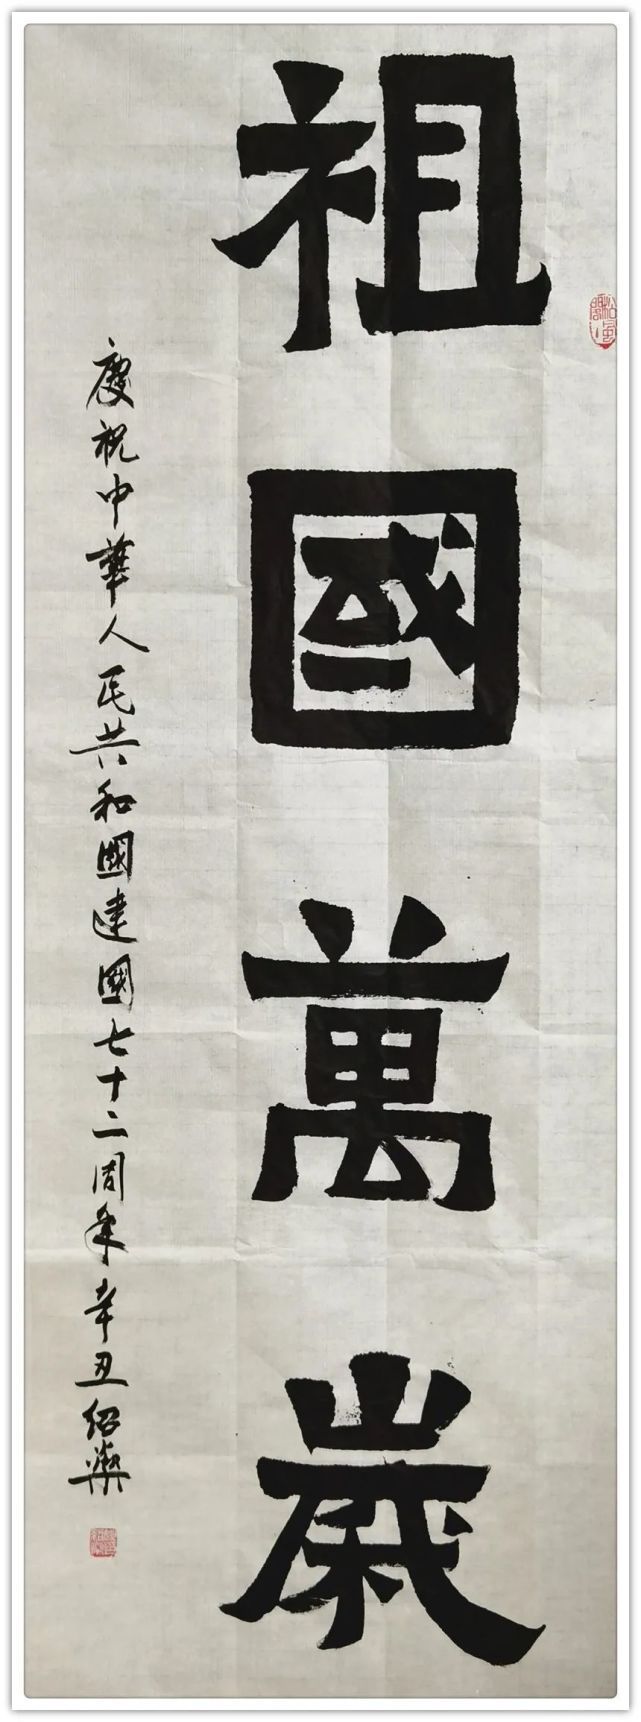 祖國萬歲
慶祝中華人民共和國建國七十二周年辛丑紹藥